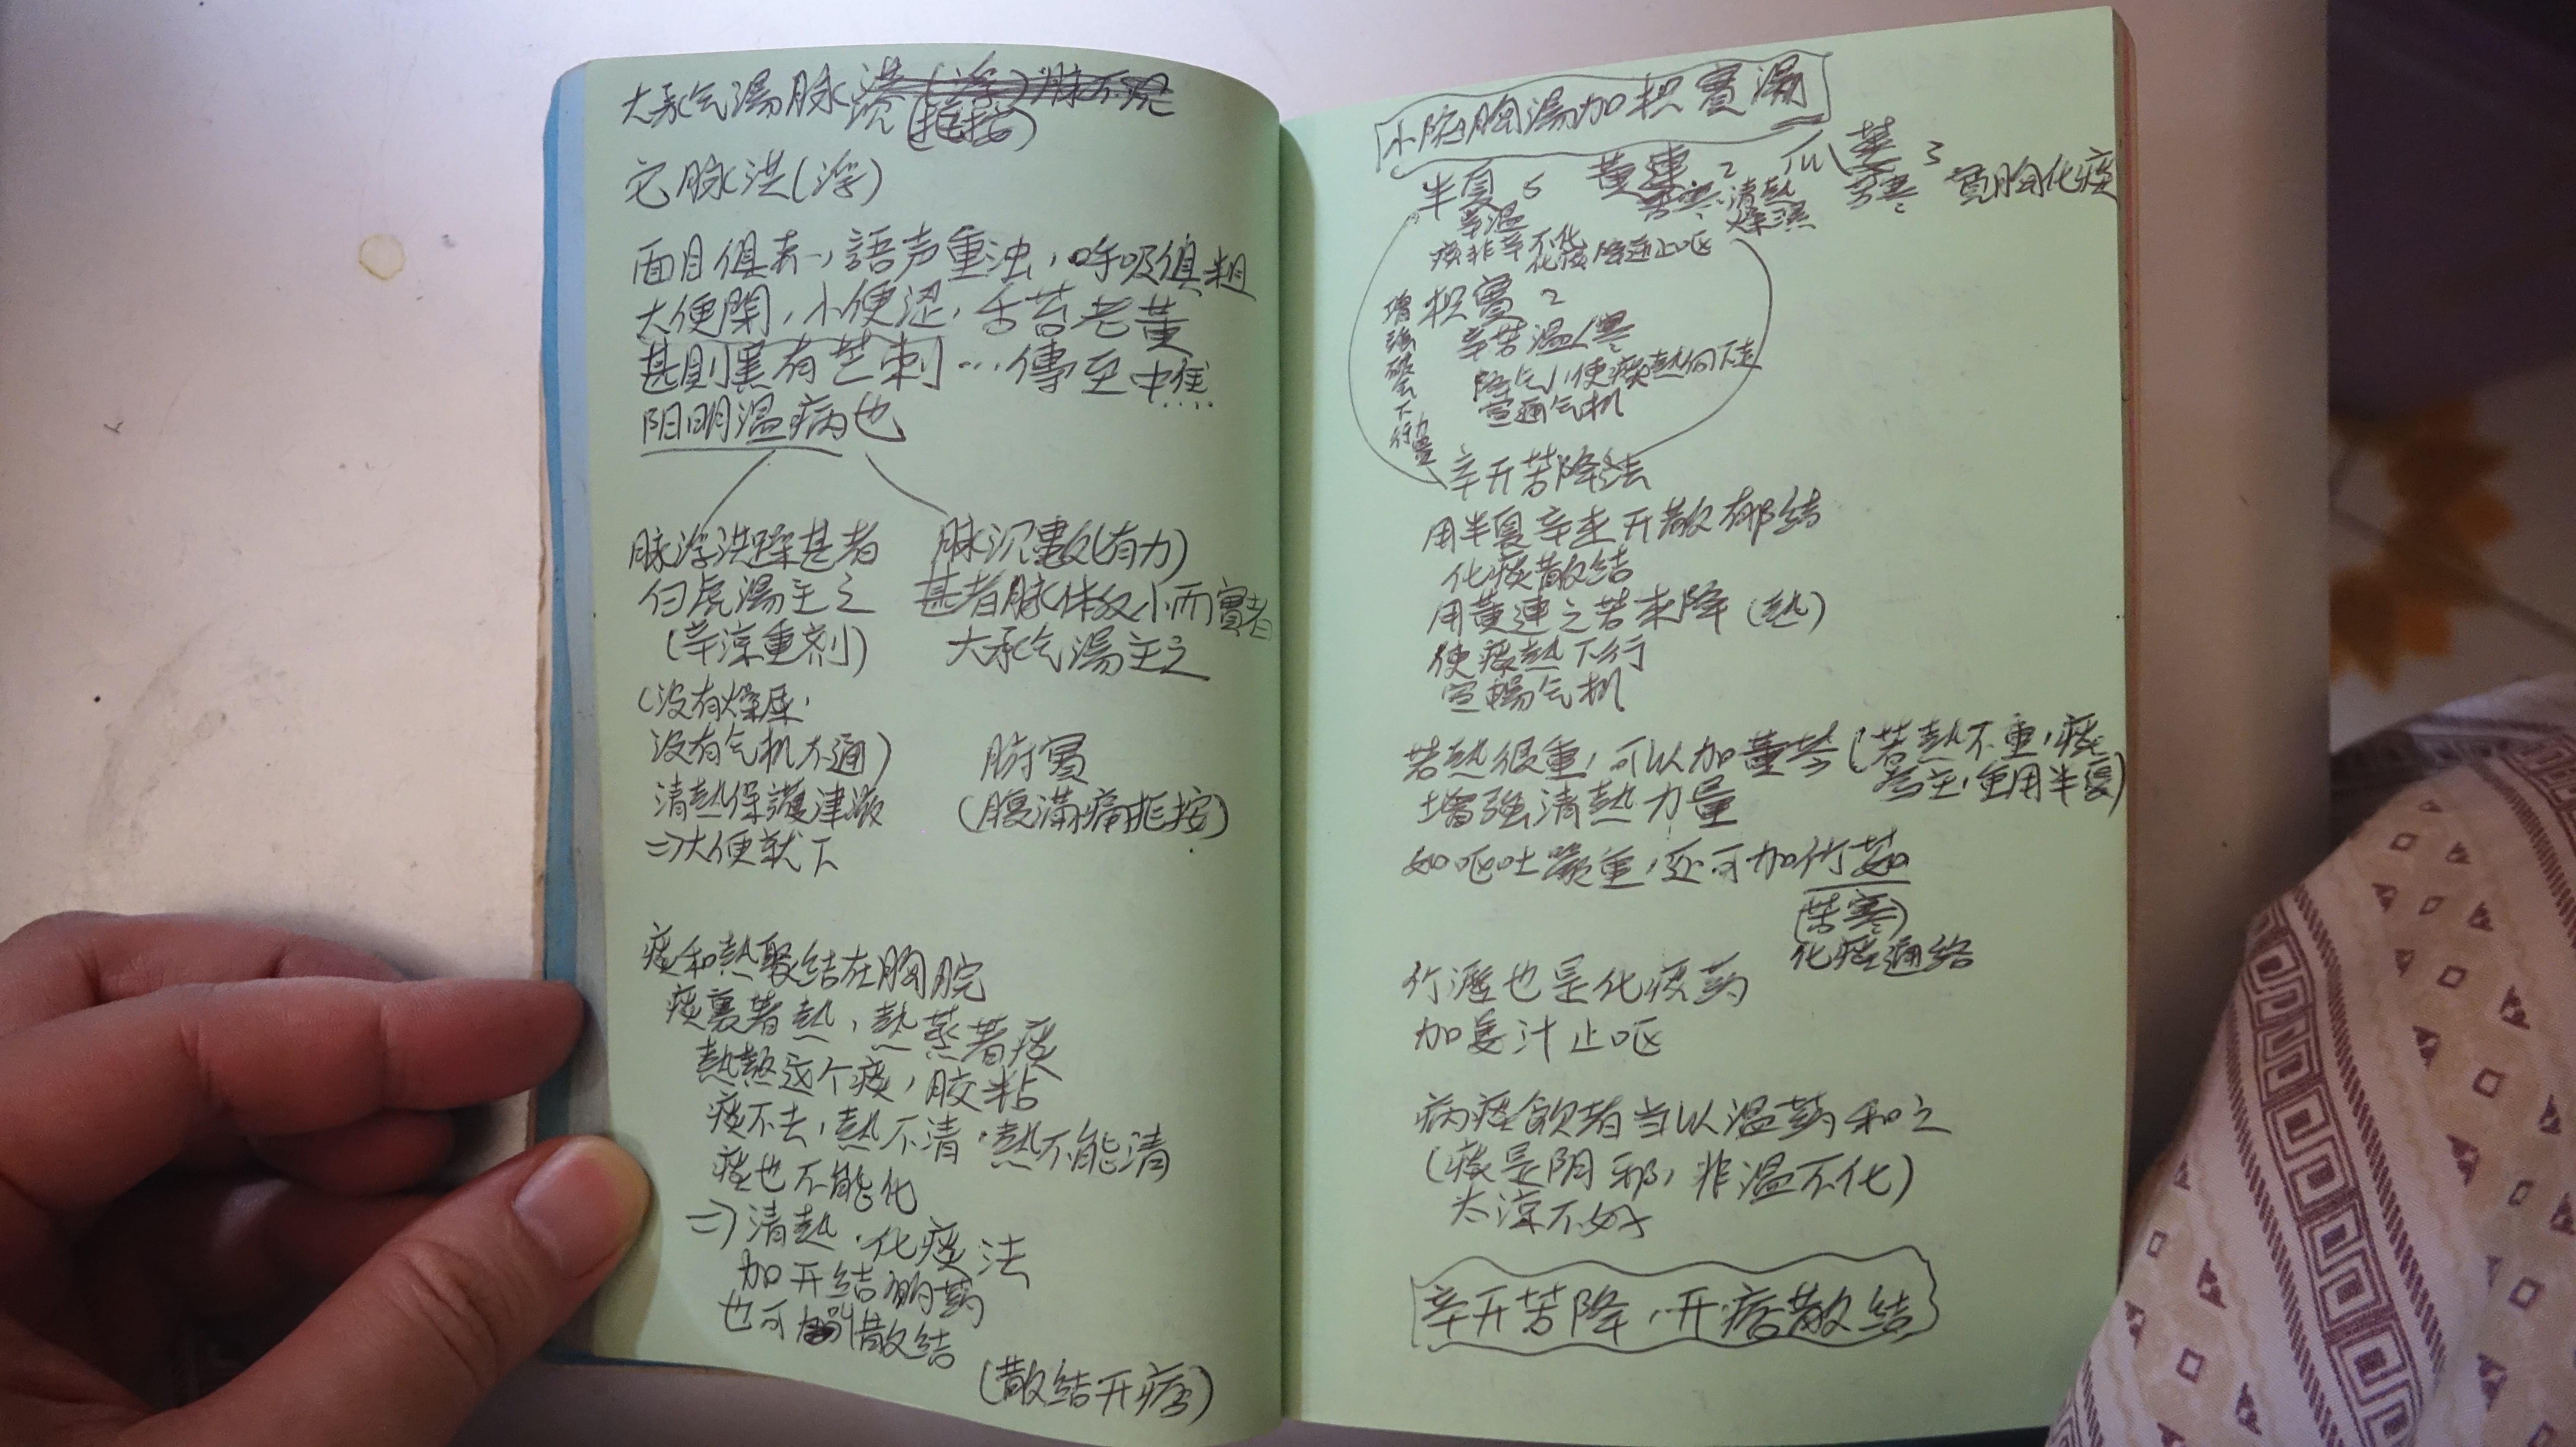 大承气湯脉
(拒按)
它脉洪(浮)
面目俱赤，語声重浊，呼吸俱粗
大便閉，小便涩，舌苔老黄
甚則黑有芒刺…傳至中焦
阳明温病也
脉浮洪躁甚者
白虎湯主之
(辛涼重剂)
(没有燥屎，
没有气机不通)
清熱保護津液
⇒大便就下
脉沉數(有力)
甚者脉体反小而實者
大承气湯主之
腑實
(腹滿痛拒按)
痰和熱聚結在胸脘
痰裹著熱，熱蒸著痰
熱熬这个痰，胶粘
痰不去，熱不清，熱不能清
痰也不能化
⇒清熱·化痰法
加开結的药
也可 散結
(散結开痞)
小陷胸湯加枳實湯
半夏 5 黄連 2 瓜蒌 3
辛温
苦寒·清熱
燥湿
苦寒 寬胸化痰
痰非辛不化
化痰降逆止呕
枳實 2
辛苦温/寒
降气，使痰熱向下走
宣通气机
增強破气下行力量
辛开苦降法
用半夏辛来开散郁結
化痰散結
用黄連之苦来降(熱)
使痰熱下行
宣暢气机
若熱很重，可以加黄芩(若熱不重，痰
為主，重用半夏)
增強清熱力量
如呕吐嚴重，还可加竹茹
(苦寒)
化痰通络
竹瀝也是化痰药
加姜汁止呕
病痰飲者当以温药和之
(痰是阴邪，非温不化)
太涼不好
辛开苦降，开痞散結